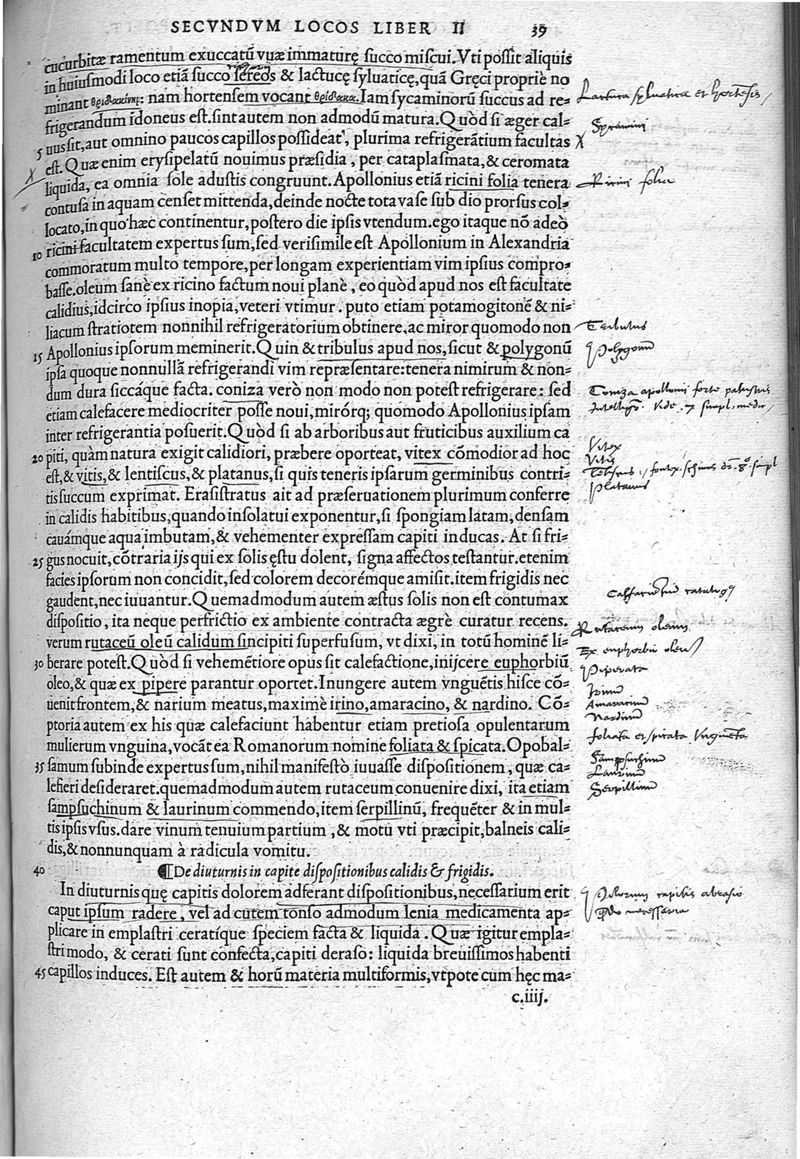 SECVNDVM LOCOS LIBER II 39
cucurbitæ ramentum exuccatũ vuæ immaturę succo miscui. Vti possit aliquis
in huiusmodi loco etiã succo sereos & lactucę syluaticę, quã Gręci propriè no
minant θριδακίνης: nam hortensem vocant θρίδακα. Iam sycaminorũ succus ad re-
frigerandum idoneus est. sint autem non admodũ matura. Quòd si æger cal-
5 uus sit, aut omnino paucos capillos possideat, plurima refrigerãtium facultas
est. Quæ enim erysipelatũ nouimus præsidia, per cataplasmata, & ceromata
liquida, ea omnia sole adustis congruunt. Apollonius etiã ricini folia tenera
contusa in aquam censet mittenda, deinde nocte tota vase sub dio prorsus col-
locato, in quo hæc continentur, postero die ipsis vtendum. ego itaque nõ adeò
10 ricini facultatem expertus sum, sed verisimile est Apollonium in Alexandria
commoratum multo tempore, per longam experientiam vim ipsius compro-
basse. oleum sanè ex ricino factum noui planè, eo quòd apud nos est facultate
calidius, idcirco ipsius inopia, veteri vtimur. puto etiam potamogitonẽ & ni-
liacum stratiotem nonnihil refrigeratorium obtinere, ac miror quomodo non
15 Apollonius ipsorum meminerit. Quin & tribulus apud nos, sicut & polygonũ
ipsa quoque nonnullã refrigerandi vim repræsentare: tenera nimirum & non-
dum dura siccáque facta. coniza verò non modo non potest refrigerare: sed
etiam calefacere mediocriter posse noui, mirórq; quomodo Apollonius ipsam
inter refrigerantia posuerit. Quòd si ab arboribus aut fruticibus auxilium ca
20 piti, quàm natura exigit calidiori, præbere oporteat, vitex cõmodior ad hoc
est, & vitis, & lentiscus, & platanus, si quis teneris ipsarum germinibus contri-
tis succum exprimat. Erasistratus ait ad præseruationem plurimum conferre
in calidis habitibus, quando insolatui exponentur, si spongiam latam, densam
cauámque aqua imbutam, & vehementer expressam capiti inducas. At si fri-
25 gus nocuit, cõtraria ijs qui ex solis ęstu dolent, signa affectos testantur. etenim
facies ipsorum non concidit, sed colorem decorémque amisit. item frigidis nec
gaudent, nec iuuantur. Quemadmodum autem æstus solis non est contumax
dispositio, ita neque perfrictio ex ambiente contracta ægrè curatur recens.
verum rutaceũ oleũ calidum sincipiti superfusum, vt dixi, in totũ hominẽ li-
30 berare potest. Quòd si vehemẽtiore opus sit calefactione, inijcere euphorbiũ
oleo, & quæ ex pipere parantur oportet. Inungere autem vnguẽtis hisce cõ-
uenit frontem, & narium meatus, maximè irino, amaracino, & nardino. Cõ-
ptoria autem ex his quæ calefaciunt habentur etiam pretiosa opulentarum
mulierum vnguina, vocãt ea Romanorum nomine foliata & spicata. Opobal-
35 samum subinde expertus sum, nihil manifestò iuuasse dispositionem, quæ ca-
lefieri desideraret. quemadmodum autem rutaceum conuenire dixi, ita etiam
sampsuchinum & laurinum commendo, item serpillinũ, frequẽter & in mul-
tis ipsis vsus. dare vinum tenuium partium, & motũ vti præcipit, balneis cali-
dis, & nonnunquam à radicula vomitu.
40 De diuturnis in capite dispositionibus calidis & frigidis.
In diuturnis quę capitis dolorem adferant dispositionibus, necessarium erit
caput ipsum radere, vel ad cutem tonso admodum lenia medicamenta ap-
plicare in emplastri ceratíque speciem facta & liquida. Quæ igitur empla-
stri modo, & cerati sunt confecta, capiti deraso: liquida breuissimos habenti
45 capillos induces. Est autem & horũ materia multiformis, vtpote cum hęc ma-
c.iiij.
Lactuca sylvatica et hortensis
Ricini folia
Tribulus
Polygonũ
Coniza apollonii forte palustris
Vitex
Vitis
Platanus
Rutaceum oleum
Ex euphorbio oleũ
Piperata
Irinũ
Amaracinũ
Nardinũ
foliata et spicata vnguẽta
Sampsuchinũ
Laurinũ
Serpillinũ